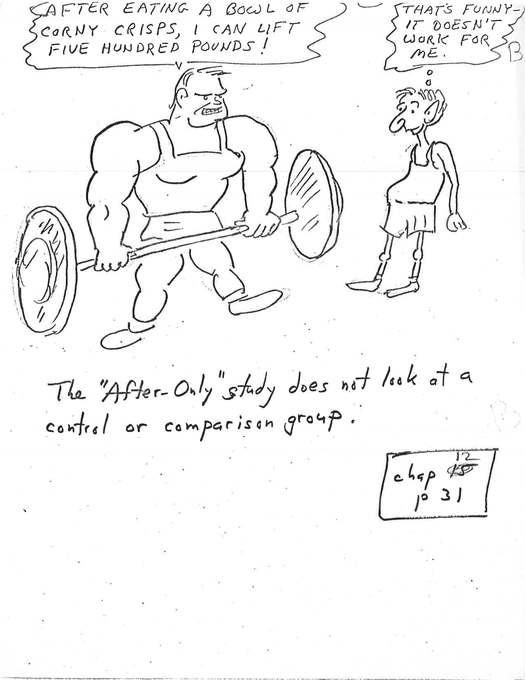 AFTER EATING A BOWL OF
CORNY CRISPS, I CAN LIFT
FIVE HUNDRED POUNDS!
THAT'S FUNNY-
IT DOESN'T
WORK FOR
ME.
The "After-Only" study does not look at a
control or comparison group.
12
chap
p 31